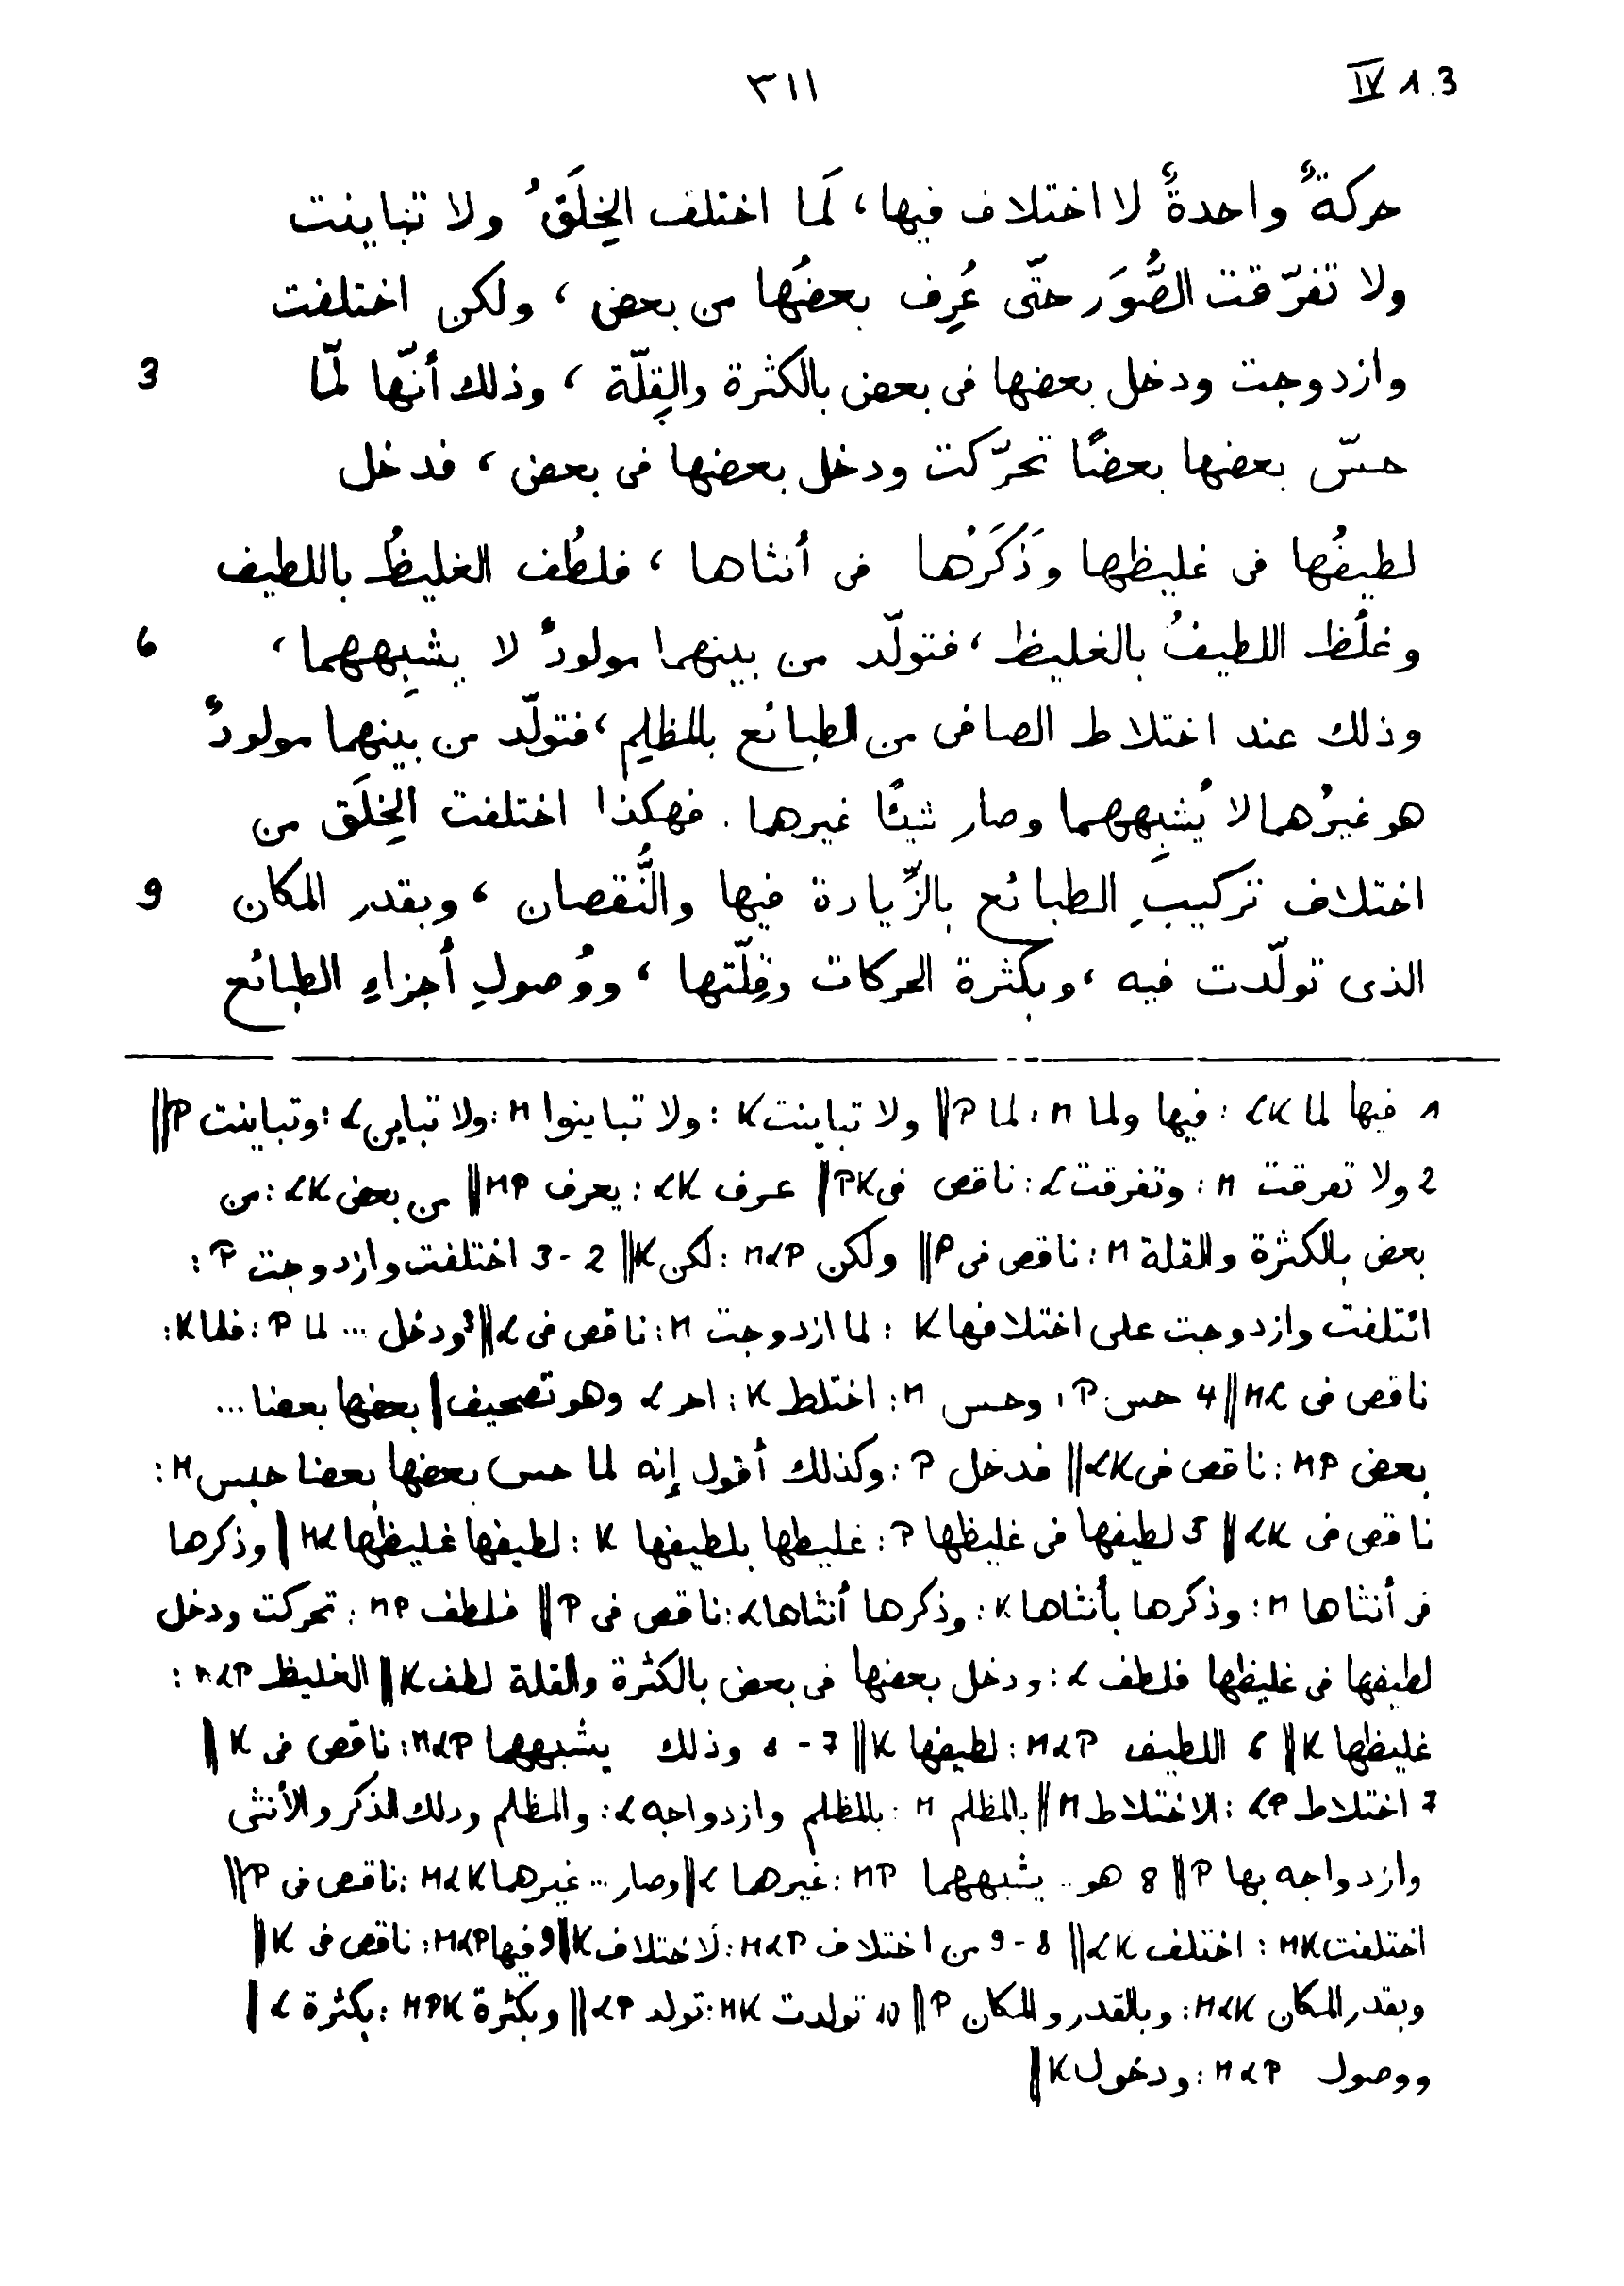 ٣١١ IV 1.3
حركةٌ واحدةٌ لا اختلاف فيها، لَما اختلف الخِلَقُ ولا تباينت
ولا تفرّقت الصُّوَر حتّى عُرِف بعضُها من بعض، ولكن اختلفت
وازدوجت ودخل بعضها فى بعض بالكثرة والقِلّة، وذلك أنّها لمّا 3
حسّ بعضها بعضًا تحرّكت ودخل بعضها فى بعض، فدخل
لطيفُها فى غليظها وذَكَرُها فى أنثاها، فلطُف الغليظُ باللطيف
وغلُظ اللطيفُ بالغليظ، فتولّد من بينهما مولودٌ لا يشبِههما، 6
وذلك عند اختلاط الصافى من الطبائع بالمظلِم، فتولّد من بينهما مولودٌ
هو غيرُهما لا يُشبِههما وصار شيئًا غيرها. فهكذا اختلفت الخِلَق من
اختلاف تركيبِ الطبائع بالزِّيادة فيها والنُّقصان، وبقدر المكان 9
الذى تولّدت فيه، وبكثرة الحركات وقِلّتها، ووُصولِ أجزاءِ الطبائع
1 فيها لما LK : فيها ولما M : لما P || ولا تباينت K : ولا تباينوا M : ولا تباين L : وتباينت P ||
2 ولا تعرقت M : وتفرقت L : ناقص فى PK | عرف LK : يعرف MP || من بعض LK : من
بعض بالكثرة والقلة M : ناقص فى P || ولكن MLP : لكن K || 2 - 3 اختلفت وازدوجت P :
ائتلفت وازدوجت على اختلافها K : لما ازدوجت M : ناقص فى L || 3 ودخل ... لما P : فلما K :
ناقص فى ML || 4 حس P : وحس M : اختلط K : احر L وهو تصحيف | بعضها بعضا ...
بعض MP : ناقص فى LK || فدخل P : وكذلك أقول إنه لما حس بعضها بعضا حبس M :
ناقص فى LK || 5 لطيفها فى غليظها P : غليظها بلطيفها K : لطيفها غليظها ML | وذكرها
فى أنثاها M : وذكرها بأنثاها K : وذكرها أنثاها L : ناقص فى P || فلطف MP : تحركت ودخل
لطيفها فى غليظها فلطف L : ودخل بعضها فى بعض بالكثرة والقلة لطف K || الغليظ MLP :
غليظها K || 6 اللطيف MLP : لطيفها K || 7 - 8 وذلك يشبههما MLP : ناقص فى K ||
7 اختلاط LP : الاختلاط M || بالمظلم M : بالمظلم وازدواجه L : والمظلم ودلك الذكر والأنثى
وازدواجه بها P || 8 هو .. يشبههما MP : غيرها L || وصار ... غيرها MLK : ناقص فى P ||
اختلفت MK : اختلف LK || 8 - 9 من اختلاف MLP : لاختلاف K || 9 فيها MLP : ناقص فى K ||
وبقدر المكان MLK : وبالقدر والمكان P || 10 تولدت MK : تولد LP || وبكثرة MPK : بكثرة L |
ووصول MLP : ودخول K ||